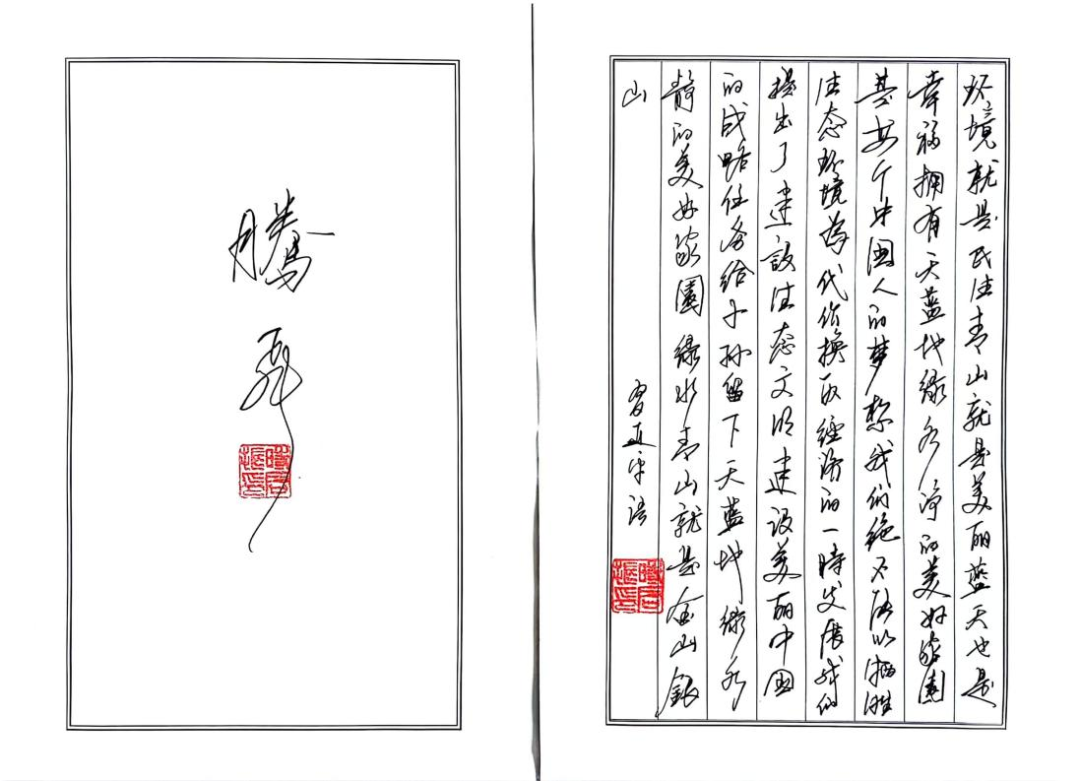 环境就是民生青山就是美丽蓝天也是
幸福拥有天蓝地绿水净的美好家園
是每个中國人的梦想我们绝不能以牺牲
生态环境为代价换取經济的一時发展我们
提出了建設生态文明建设美丽中国
的战略任务给子孙留下天蓝地绿水
静的美好家園绿水青山就是金山銀
山
习近平语
騰飛